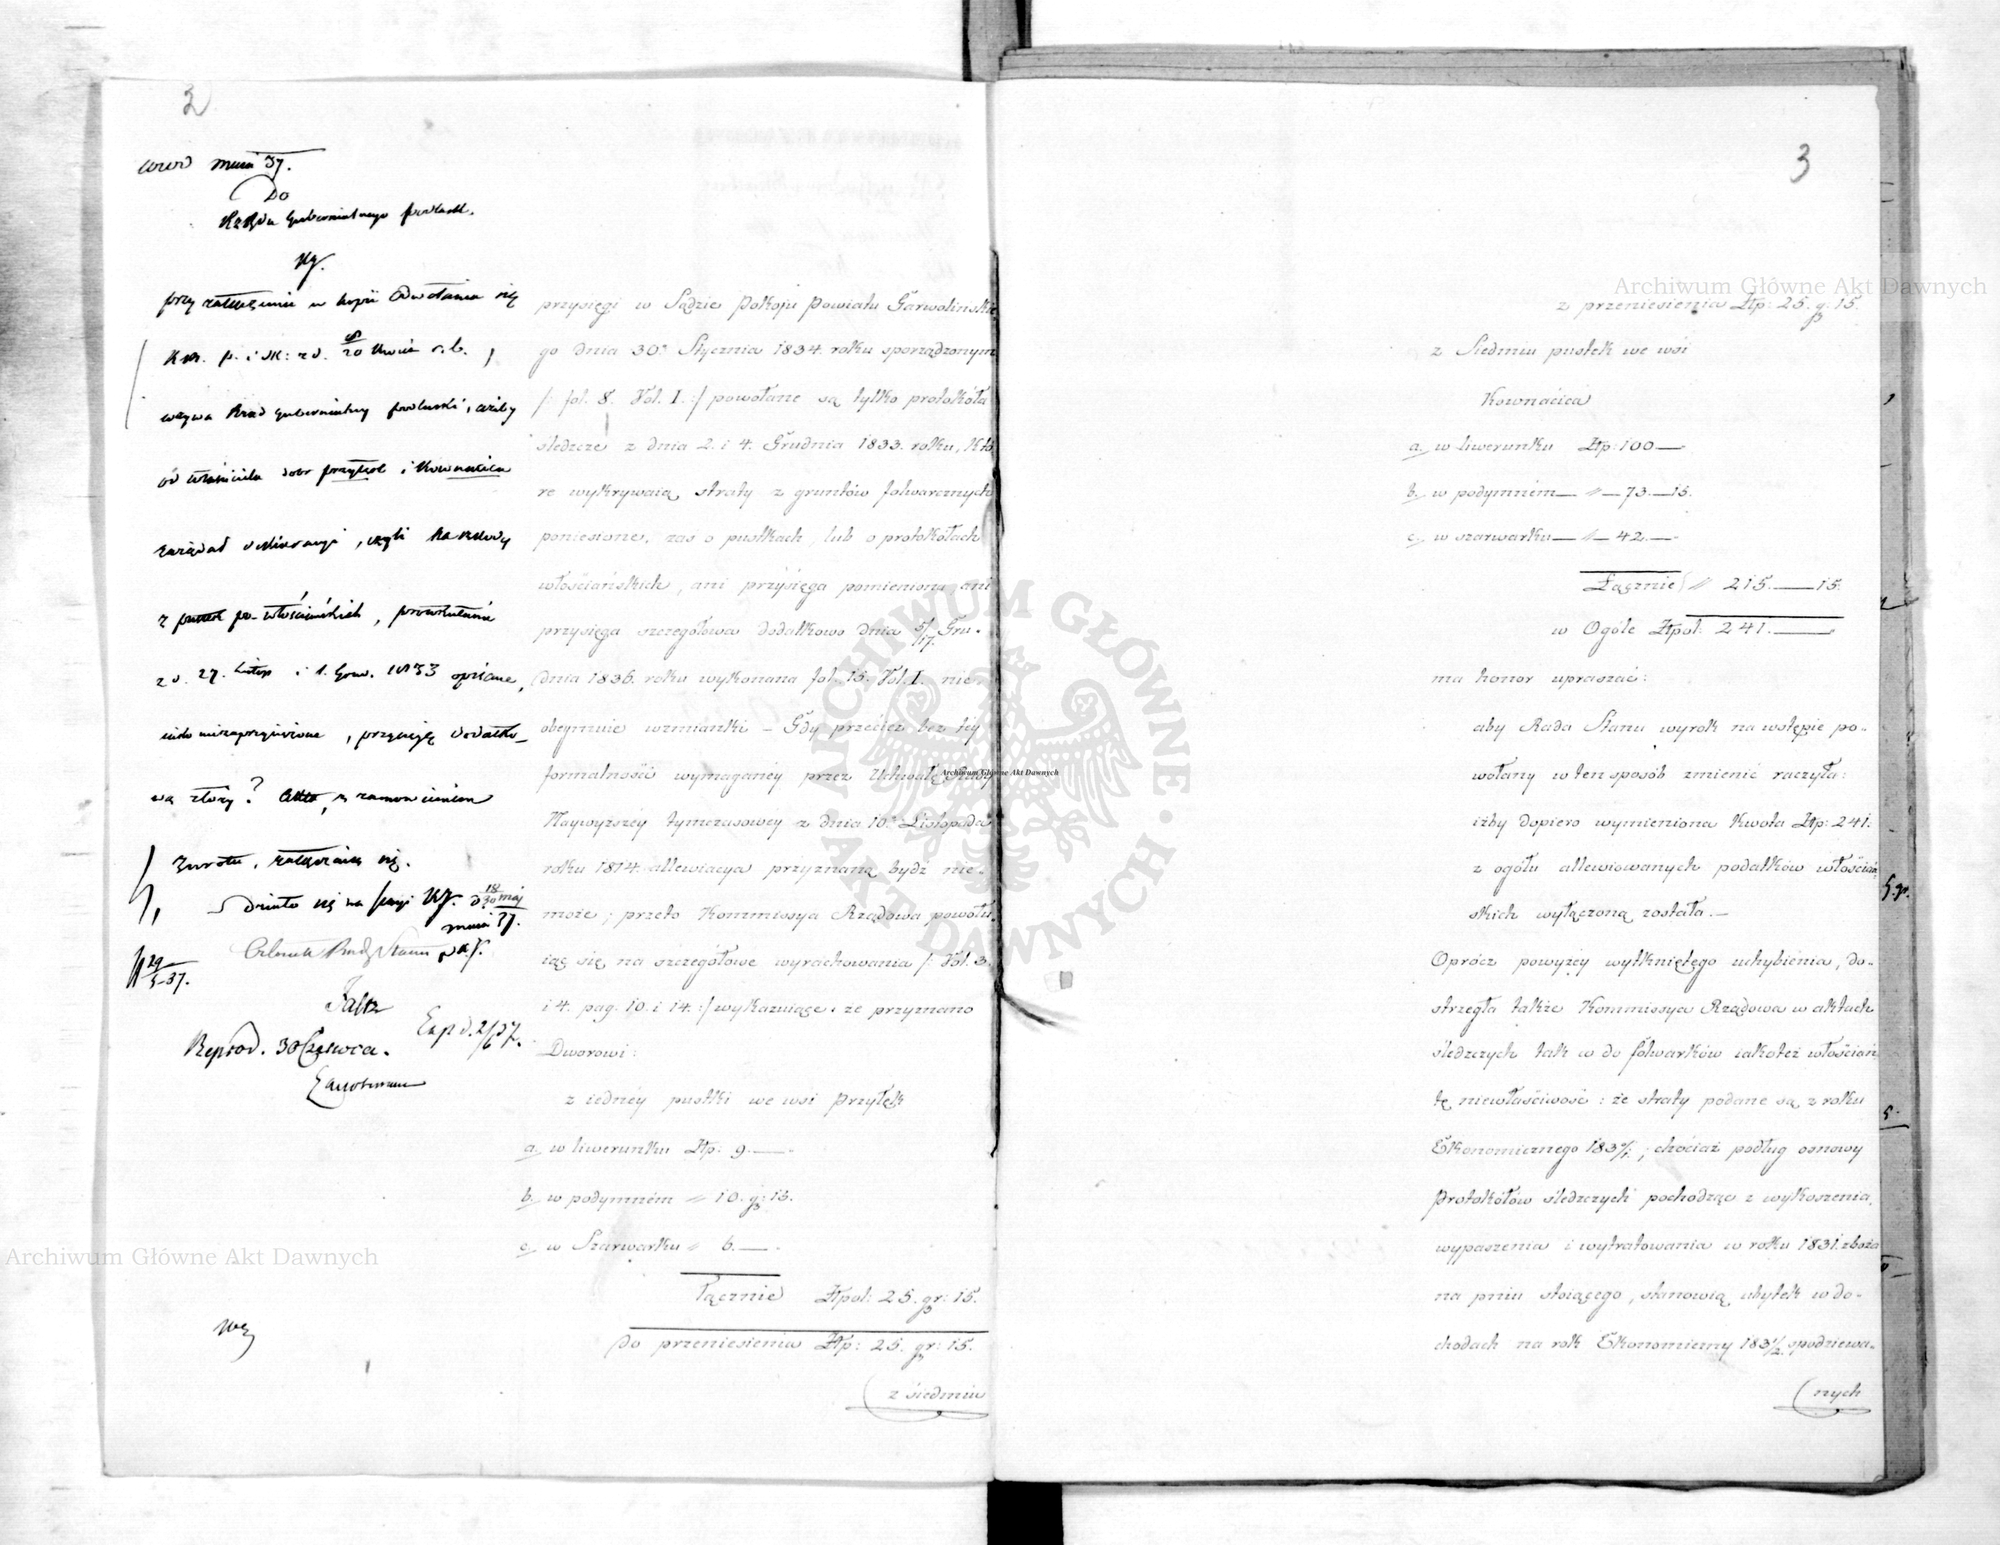 2
maia 37.
Do
Rządu Gubernialnego podlask.
przy załączeniu w kopii odwołania się
wzywa Rząd Gubernialny podlaski, ażeby
od właściciela dobr przyłęk i Kownacica
zażądał deklaracyi, czyli na szkody
z pustek po-włościańskich, protokułami
z d. 27. Listop i 1. Grud. 1833 opisane,
dotąd niezaprzysiężone, przysięgę dodatko-
wą złoży? Akta, z zamówieniem
zwrotu, załączaią się.
działo się na sessyi d. 18/30 maj
37.
29/5 37.
Faltz
Reprod. 30 Czerwca.
Exp d. 2/6 37.
przysięgi w Sądzie Pokoju Powiatu Garwolińskie
go dnia 30. Stycznia 1834. roku sporządzonym
/: fol. 8. Vol. I. :/ powołane są tylko protokóła
śledcze z dnia 2. i 4. Grudnia 1833. roku, któ
re wykrywaią straty z gruntów folwarcznych
poniesione, zaś o pustkach, lub o protokółach
włościańskich, ani przysięga pomieniona ani
przysięga szczegółowa dodatkowo dnia 5/17. Gru-
dnia 1836. roku wykonana fol. 15. Vol. I. nie
obeymuie wzmianki – Gdy przecież bez tey
formalności wymaganéy przez Uchwałę Rady
Naywyższey tymczasowey z dnia 10. Listopada
roku 1814. allewiacya przyznaną bydź nie-
może; przeto Kommissya Rządowa powołu
iąc się na szczegółowe wyrachowania /: Vol. 3.
i 4. pag. 10. i 14. :/ wykazuiące, że przyznano
Dworowi:
z iednéy pustki we wsi Przyłęk
a. w liwerunku Złp: 9. —
b. w podymném " 10. gr: 15.
c. w Szarwarku " 6. —
Łącznie Złpol: 25. gr: 15.
do przeniesienia Złp: 25. gr: 15.
z siedmiu
3
z przeniesienia Złp: 25. gr: 15.
z Siedmiu pustek we wsi
Kownacica
a. w liwerunku Złp: 100 —
b. w podymném — " — 73. — 15.
c. w szarwarku — " — 42. —
Łącznie " 215. — 15.
w Ogóle Złpol: 241. —
ma honor upraszać:
aby Rada Stanu wyrok na wstępie po-
wołany w ten sposób zmienić raczyła:
iżby dopiero wymieniona kwota Złp: 241.
z ogółu allewiowanych podatków włościań
skich wyłączoną została. —
Oprócz powyżey wytkniętego uchybienia, do-
strzegła także Kommissya Rządowa w aktach
śledczych tak co do folwarków iakoteż włościan
tę niewłaściwość: że straty podane są z roku
Ekonomicznego 183 0/1; chociaż podług osnowy
Protokółów śledczych pochodząc z wykoszenia,
wypaszenia i wytratowania w roku 1831. zboża
na pniu stoiącego, stanowią ubytek w do-
chodach na rok Ekonomiczny 183 1/2 spodziewa-
nych
Archiwum Główne Akt Dawnych
Archiwum Główne Akt Dawnych
Archiwum Główne Akt Dawnych
ARCHIWUM GŁÓWNE AKT DAWNYCH